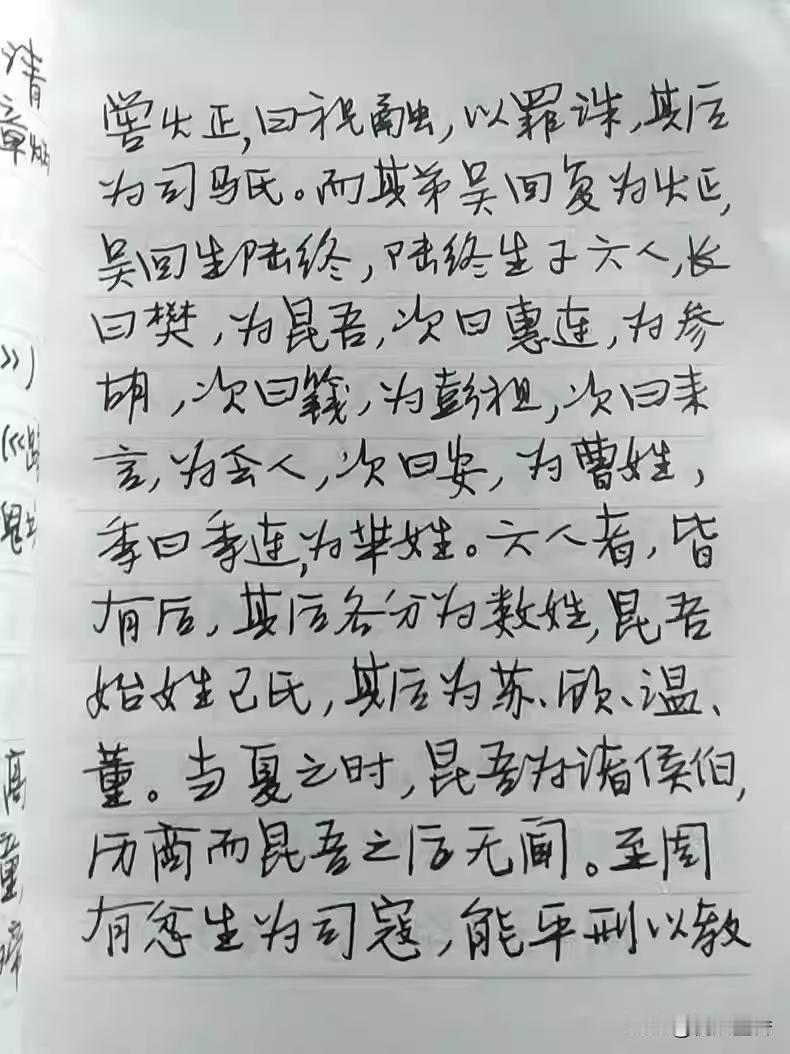 喾火正,曰祝融,以罪诛,其后
为司马氏。而其弟吴回复为火正,
吴回生陆终,陆终生子六人,长
曰樊,为昆吾,次曰惠连,为参
胡,次曰籛,为彭祖,次曰来
言,为会人,次曰安,为曹姓,
季曰季连,为芈姓。六人者,皆
有后,其后各分为数姓,昆吾
始姓己氏,其后为苏、顾、温、
董。当夏之时,昆吾为诸侯伯,
历商而昆吾之后无闻。至周
有忿生为司寇,能平刑以教
请
章
》)
高
童